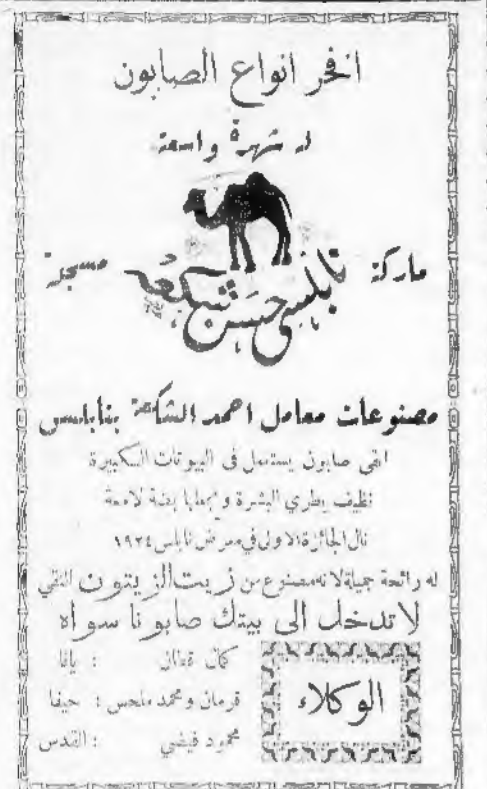 افخر انواع الصابون
له شهرة واسعة
ماركة
نابلسي حسن شكعه
مسجلة
مصنوعات معامل احمد الشكعة بنابلس
انقى صابون يستعمل في البيوتات الكبيرة
نظيف يطري البشرة ويجعلها بضة لامعة
نال الجائزة الاولى في معرض نابلس ١٩٢٤
له رائحة جميلة لانه مصنوع من زيت الزيتون النقي
لا تدخل الى بيتك صابونا سواه
الوكلاء
كمال : يافا
قرمان ومحمد ملحس : حيفا
محمود فيضي : القدس